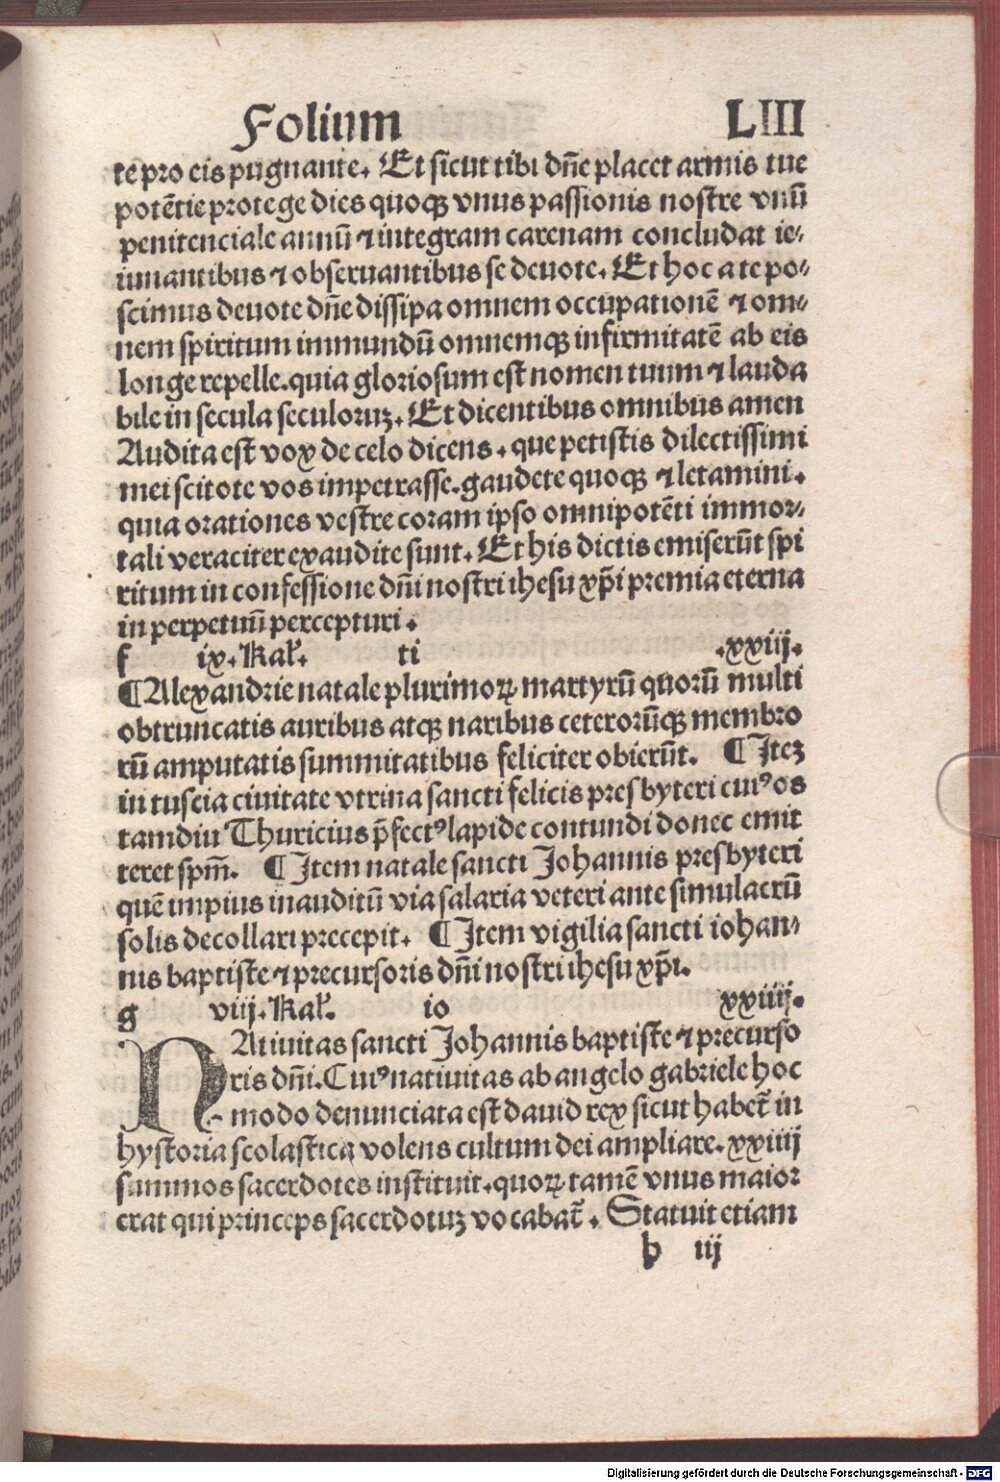 Folium LIII
te pro eis pugnante. Et sicut tibi dn̄e placet armis tue
potētie protege dies quoqꝫ vnus passionis nostre vnū
penitenciale annū ⁊ integram carenam concludat ie⸗
iunantibus ⁊ obseruantibus se deuote. Et hoc a te po⸗
scimus deuote dn̄e dissipa omnem occupationē ⁊ om⸗
nem spiritum immundū omnemqꝫ infirmitatē ab eis
longe repelle.quia gloriosum est nomen tuum ⁊ lauda
bile in secula seculoruꝫ. Et dicentibus omnibus amen
Audita est vox de celo dicens. que petistis dilectissimi
mei scitote vos impetrasse.gaudete quoqꝫ ⁊ letamini.
quia orationes vestre coram ipso omnipotēti immor⸗
tali veraciter exaudite sunt. Et his dictis emiserūt spi
ritum in confessione dn̄i nostri ihesu xp̄i premia eterna
in perpetuū percepturi.
f ix. Kal̕. ti .xxiij.
¶Alexandrie natale plurimoꝝ martyrū quorū multi
obtruncatis auribus atqꝫ naribus ceterorūqꝫ membro
rū amputatis summitatibus feliciter obierūt. ¶Iteꝫ
in tuscia ciuitate vtrina sancti felicis presbyteri cuiꝰ os
tamdiu Thuricius p̄fectꝰ lapide contundi donec emit
teret sp̄m. ¶Item natale sancti Johannis presbyteri
quē impius inauditū via salaria veteri ante simulacrū
solis decollari precepit. ¶Item vigilia sancti iohan⸗
nis baptiste ⁊ precursoris dn̄i nostri ihesu xp̄i.
g viij. Kal̕. io xxiiij.
NAtiuitas sancti Johannis baptiste ⁊ precurso
ris dn̄i.Cuiꝰ natiuitas ab angelo gabriele hoc
modo denunciata est dauid rex sicut habet̄ in
hystoria scolastica volens cultum dei ampliare.xxiiij
summos sacerdotes instituit.quoꝝ tamē vnus maior
erat qui princeps sacerdotuꝫ vocabat̄. Statuit etiam
h iij
Digitalisierung gefördert durch die Deutsche Forschungsgemeinschaft - DFG